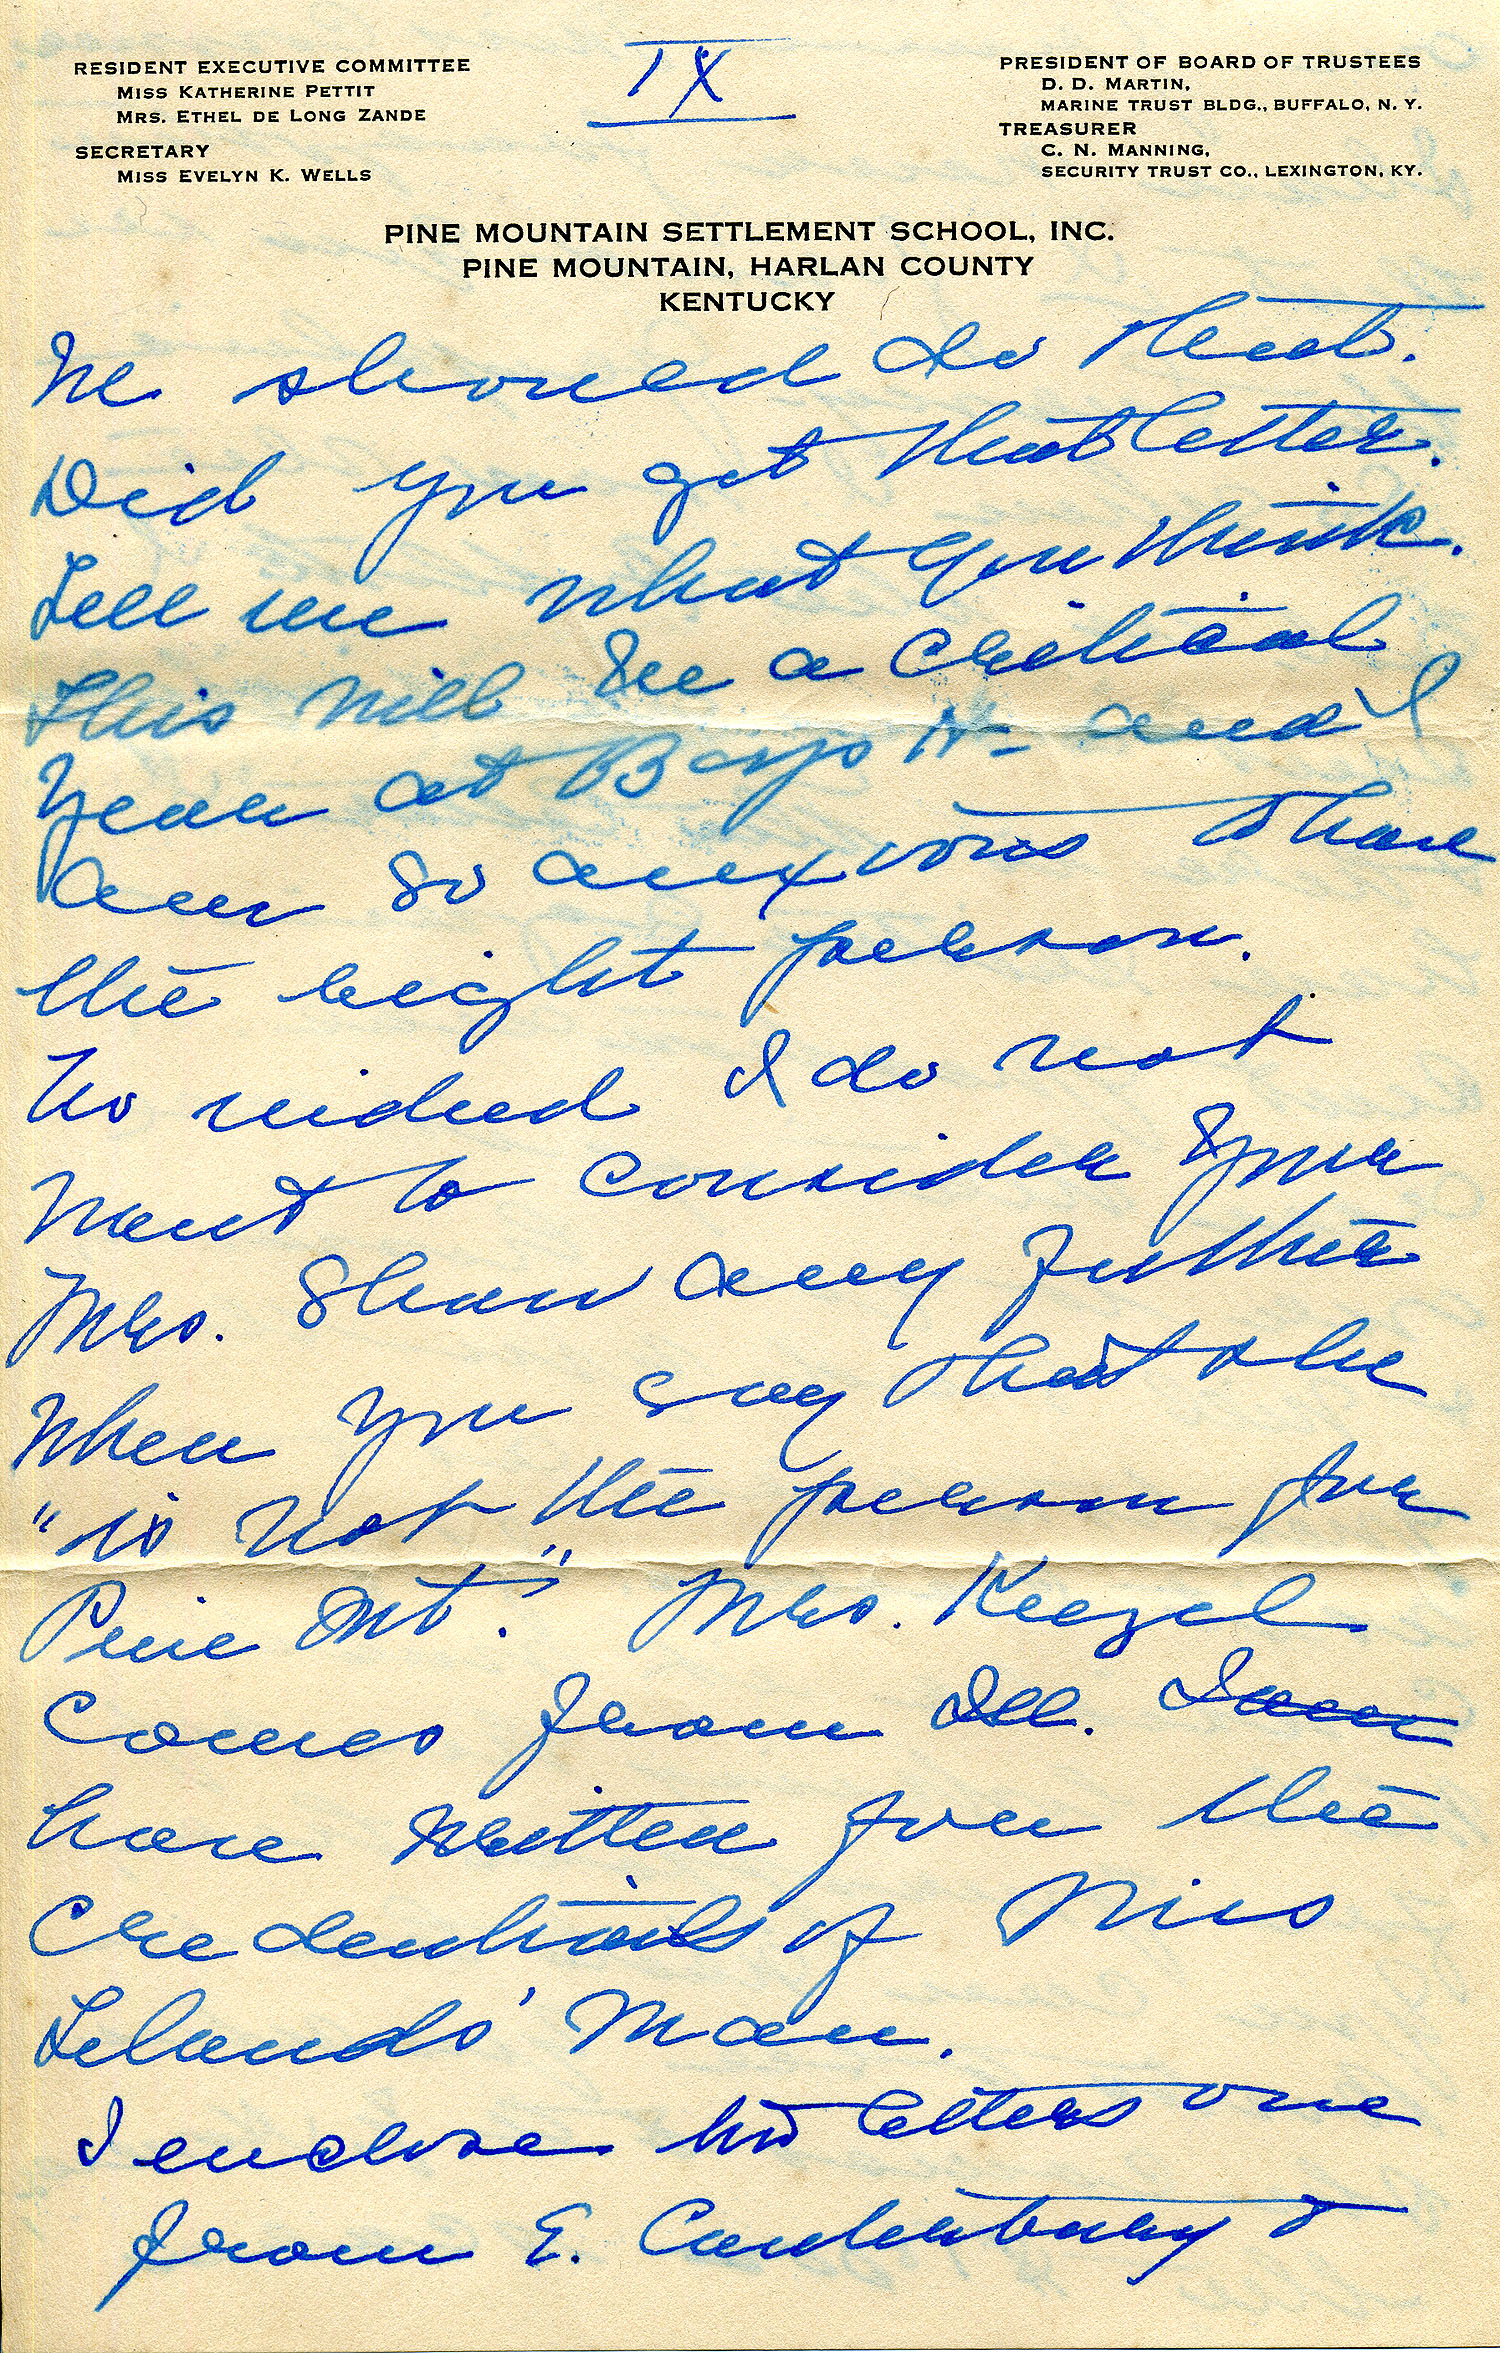 RESIDENT EXECUTIVE COMMITTEE
MISS KATHERINE PETTIT
MRS. ETHEL DE LONG ZANDE
SECRETARY
MISS EVELYN K. WELLS
IX
PRESIDENT OF BOARD OF TRUSTEES
D. D. MARTIN,
MARINE TRUST BLDG., BUFFALO, N. Y.
TREASURER
C. N. MANNING,
SECURITY TRUST CO., LEXINGTON, KY.
PINE MOUNTAIN SETTLEMENT SCHOOL, INC.
PINE MOUNTAIN, HARLAN COUNTY
KENTUCKY
We should do that.
Did you get that letter.
Tell me what you think.
This will be a critical
year at Boys H- and I
am so anxious to have
the right person.
No indeed I do not
want to consider your
Mrs. Shaw any further
when you say that she
"is not the person for
Pine Mt." Mrs. Keezel
comes from Ill. I am
have written for the
credentials of Miss
Lelands' man.
I enclose two letters one
from E. Canterbury &